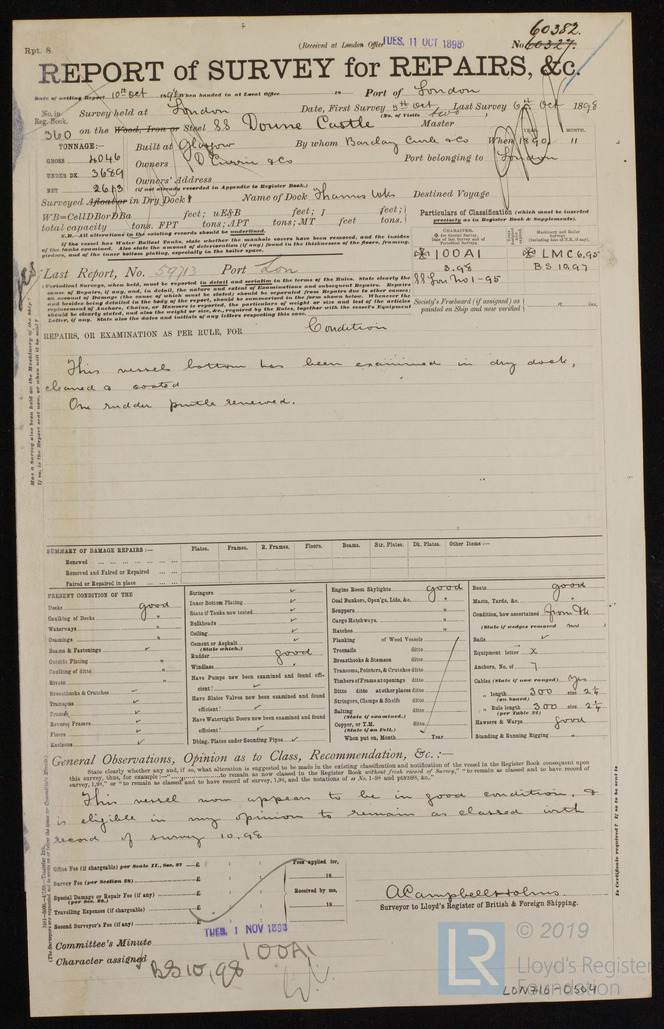 60352.
Rpt. 8.
(Received at London Office TUES, 11 OCT 1898)
No. 60327.
REPORT of SURVEY for REPAIRS, &c.
Date of writing Report 10th Oct 1898 When handed in at Local Office 18 Port of London
No. in Reg. Book. Survey held at London Date, First Survey 5th Oct Last Survey 6th Oct 1898
(No. of Visits two)
360 on the Wood, Iron or Steel SS Doune Castle Master
TONNAGE:— Built at Glasgow By whom Barclay Curle & Co When 1890 11
YEAR. MONTH.
GROSS 4046 Owners D Currie & Co Port belonging to London
UNDER DK. 3689 Owners' Address
NET 2613 (if not already recorded in Appendix to Register Book.)
Surveyed Afloat or in Dry Dock? Name of Dock Thames Wks Destined Voyage
WB=CellDBorDBa feet; uE&B feet; f feet;
total capacity tons. FPT tons; APT tons; MT feet tons.
Particulars of Classification (which must be inserted precisely as in Register Book & Supplements).
N.B.—All alterations in the existing records should be underlined.
If the vessel has Water Ballast Tanks, state whether the manhole covers have been removed, and the insides of the tanks examined. Also state the amount of deterioration (if any) found in the thicknesses of the floors, framing, girders, and of the inner bottom plating, especially in the boiler space.
CHARACTER.
✠ 100A1 ✠ LMC 6,95
3.98 BS 10,97
SS Lon No 1-95
Last Report, No. 59713 Port Lon
Society's Freeboard (if assigned) as painted on Ship and now verified ins.
(Periodical Surveys, when held, must be reported in detail and seriatim in the terms of the Rules. State clearly the cause of Repairs, if any, and, in detail, the nature and extent of Examinations and subsequent Repairs. Repairs on account of Damage (the cause of which must be stated) should be separated from Repairs due to other causes; and besides being detailed in the body of the report, should be summarised in the form shown below. Whenever the replacement of Anchors, Chains, or Hawsers is reported, the particulars of weight or size and test of the articles should be clearly stated, and also the weight or size, &c., required by the Rules, together with the vessel's Equipment Letter, if any. State also the dates and initials of any letters respecting this case.
REPAIRS, OR EXAMINATION AS PER RULE, FOR Condition
This vessels bottom has been examined in dry dock,
cleaned & coated
One rudder pintle renewed.
SUMMARY OF DAMAGE REPAIRS:— Plates. Frames. R. Frames. Floors. Beams. Str. Plates. Dk. Plates. Other Items:—
Renewed
Removed and Faired or Repaired
Faired or Repaired in place
PRESENT CONDITION OF THE
Decks good
Caulking of Decks "
Waterways "
Coamings "
Beams & Fastenings ✓
Outside Plating "
Caulking of ditto "
Rivets "
Breasthooks & Crutches ✓
Transoms ✓
Frames ✓
Reverse Frames ✓
Floors ✓
Keelsons ✓
Stringers ✓
Inner Bottom Plating ✓
State if Tanks now tested ✓
Bulkheads ✓
Ceiling ✓
Cement or Asphalt ✓
(State which.)
Rudder good
Windlass "
Have Pumps now been examined and found efficient? ✓
Have Sluice Valves now been examined and found efficient? ✓
Have Watertight Doors now been examined and found efficient? ✓
Dblng. Plates under Sounding Pipes ✓
Engine Room Skylights good
Coal Bunkers, Open'gs, Lids, &c. "
Scuppers "
Cargo Hatchways "
Hatches "
Planking of Wood Vessels
Treenails ditto
Breasthooks & Stemson ditto
Transoms, Pointers, & Crutches ditto
Timbers of Frame at openings ditto
Ditto ditto at other places ditto
Stringers, Clamps & Shelfs ditto
Salting ditto
(State if examined.)
Copper, or Y.M. ditto
(State if on Felt.)
When put on, Month Year
Boats good
Masts, Yards, &c. "
Condition, how ascertained from dk
(State if wedges removed no)
Sails ✓
Equipment letter X
Anchors, No. of 7
Cables (State if now ranged) Yes
" length 300 size 2 1/4
(on board)
" Rule length 300 size 2 1/4
(per Table 22)
Hawsers & Warps good
Standing & Running Rigging "
General Observations, Opinion as to Class, Recommendation, &c. :—
State clearly whether any and, if so, what alteration is suggested to be made in the existing classification and notification of the vessel in the Register Book consequent upon this survey, thus, for example:—
This vessel now appears to be in good condition, &
is eligible in my opinion to remain as classed with
record of survey 10,98
Office Fee (if chargeable) per Scale II., Sec. 27 £
Survey Fee (per Section 28) £
Special Damage or Repair Fee (if any) £
(per Sec. 28.)
Travelling Expenses (if chargeable) £
Second Surveyor's Fee (if any) £
Fees applied for, 18
Received by me, 18
A Campbell Holms.
Surveyor to Lloyd's Register of British & Foreign Shipping.
TUES, 1 NOV 1898
Committee's Minute
Character assigned 100A1
BS 10,98
© 2019
LR Lloyd's Register Foundation
LON716-0504